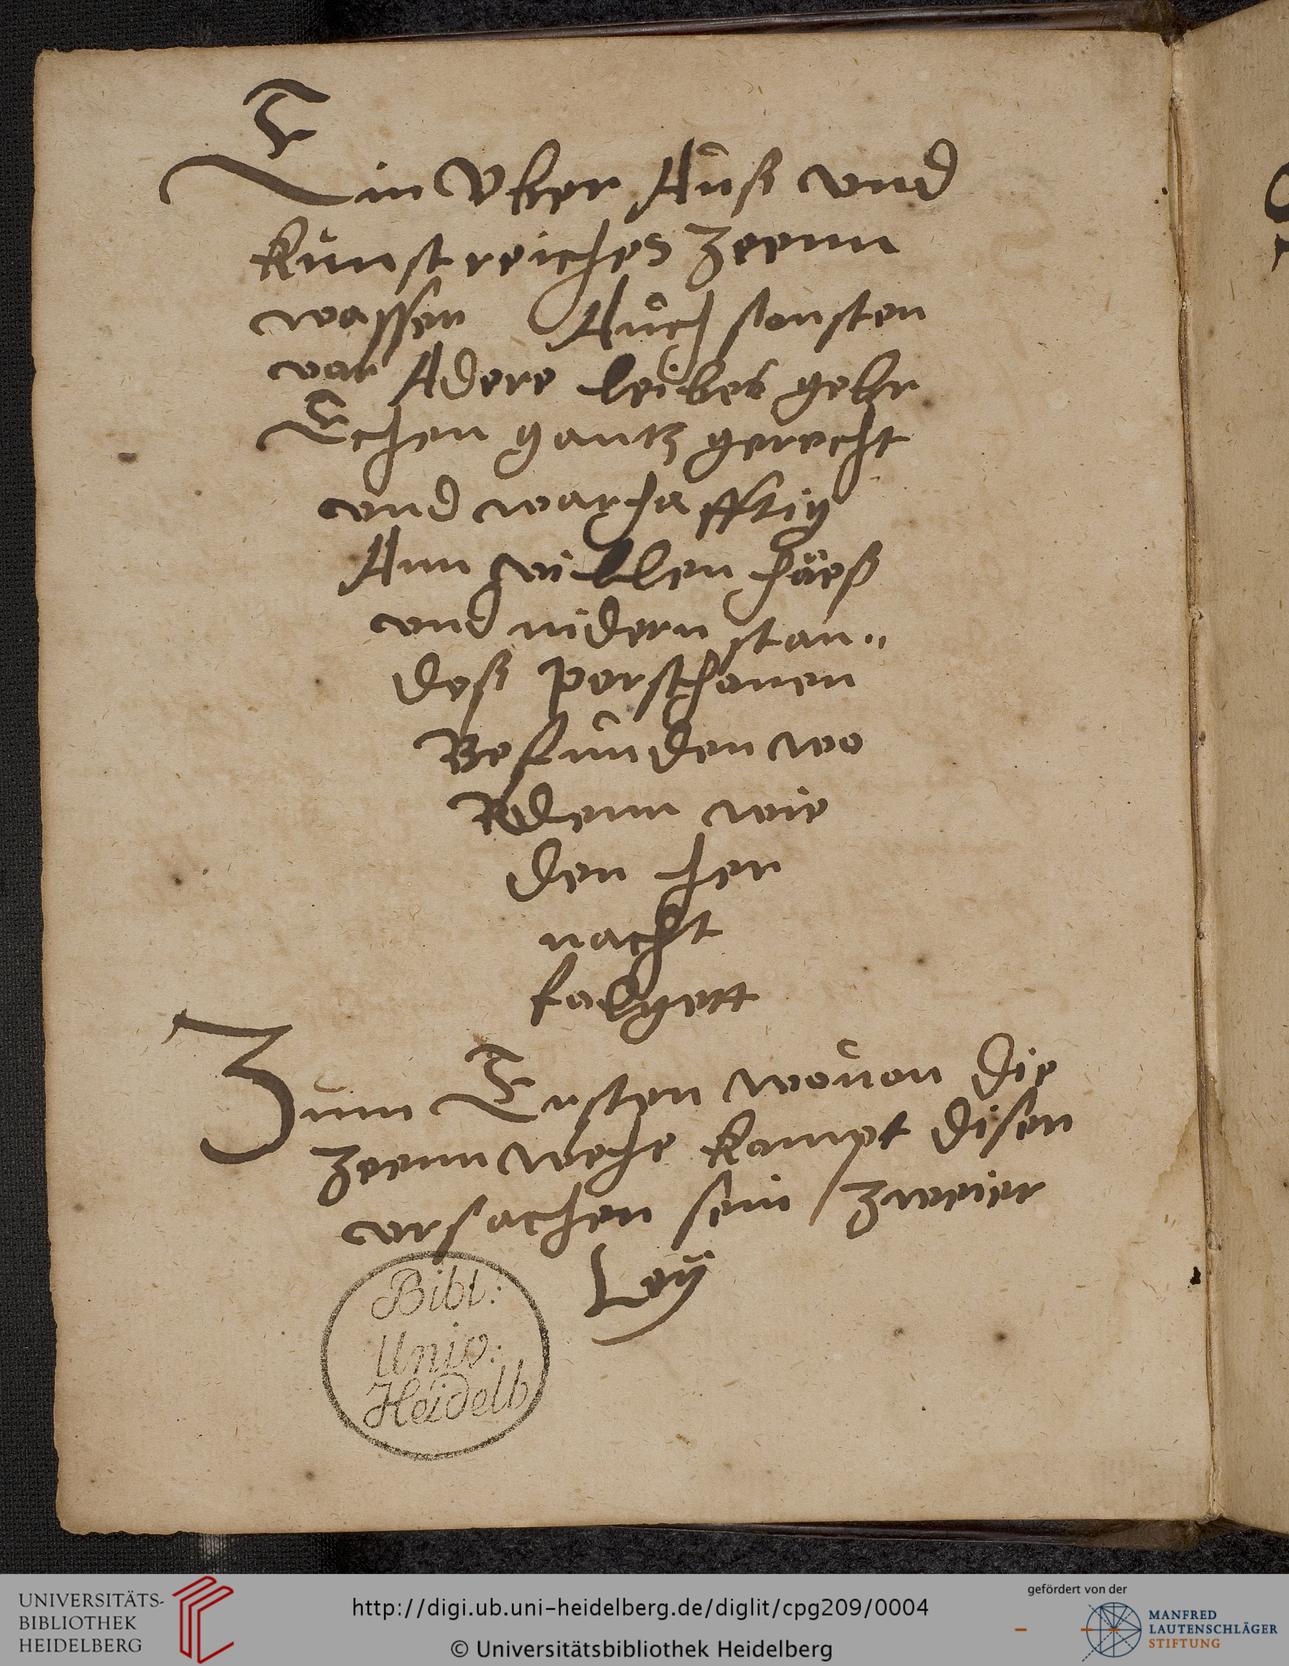 Ein Vber Auß vnd
kunstreiches Zeenn
wasser Auch sonsten
vor Adere leibes gebr
Echen gantz gerecht
vnd warhafftig
Ann villen häeß
vnd nidern stan„
deß perschonen
Befunden wo
Rdenn wie
den her
nacht
folgett
Zum Ersten wouon die
Zeennwehe kompt disen
vrsachen sein / Zweier
Ley
Bibl:
Univ:
Heidelb
UNIVERSITÄTS-
BIBLIOTHEK
HEIDELBERG
http://digi.ub.uni-heidelberg.de/diglit/cpg209/0004
© Universitätsbibliothek Heidelberg
gefördert von der
MANFRED
LAUTENSCHLÄGER
STIFTUNG